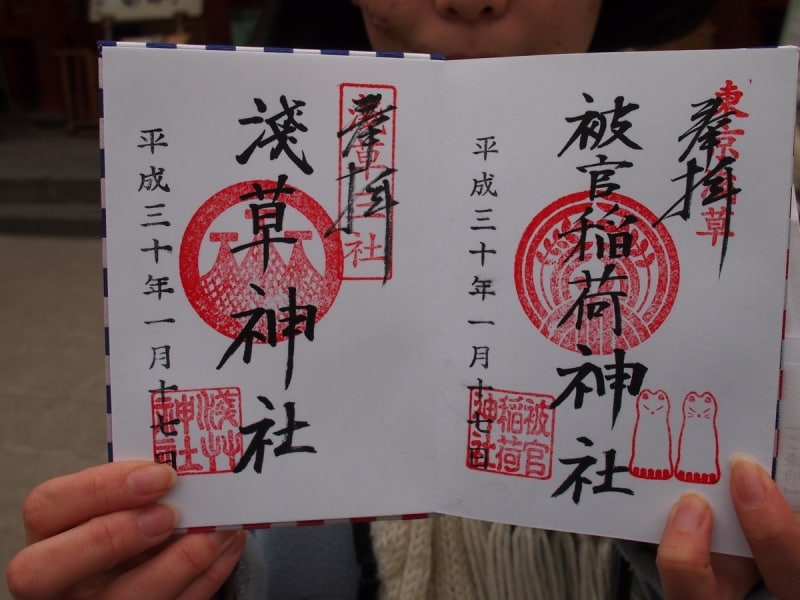 東京浅草
奉拝
被官稲荷神社
平成三十年一月十七日
被官
稲荷
神社
奉拝
淺草神社
平成三十年一月十七日
淺艸
神社